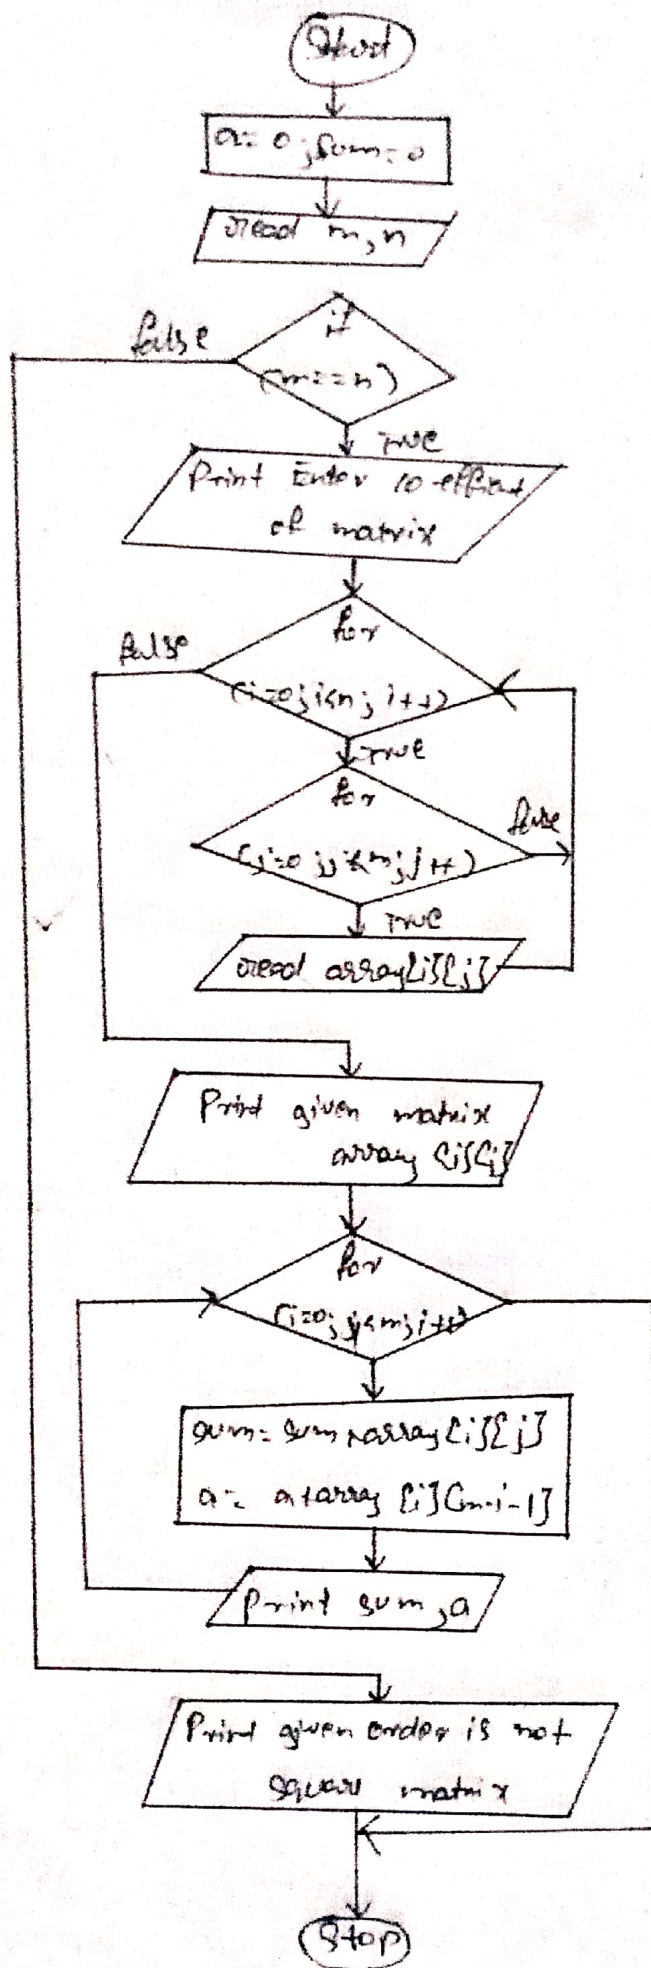 Start
a= 0; sum=0
read m,n
false
if
(m==n)
TRUE
Print Enter co-efficient
of matrix
false
for
(i=0; i<n; i++)
TRUE
for
false
(j=0; j<m; j++)
TRUE
read array[i][j]
Print given matrix
array [i][j]
for
(i=0; j<m; i++)
sum= sum+array[i][j]
a= a+array [i][m-i-1]
Print sum,a
Print given order is not
square matrix
Stop